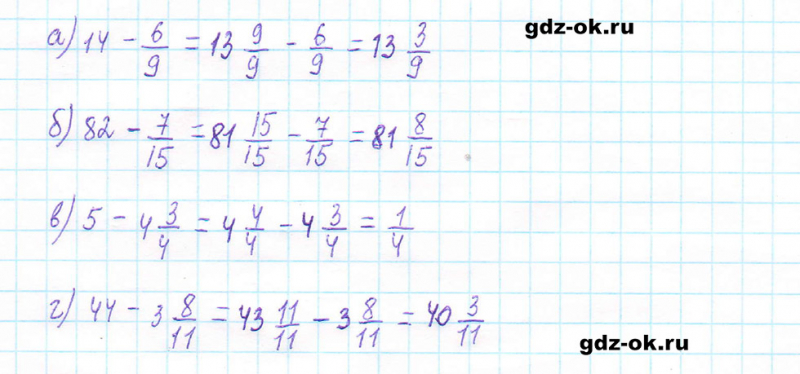 gdz-ok.ru
а) 14 - 6/9 = 13 9/9 - 6/9 = 13 3/9
б) 82 - 7/15 = 81 15/15 - 7/15 = 81 8/15
в) 5 - 4 3/4 = 4 4/4 - 4 3/4 = 1/4
г) 44 - 3 8/11 = 43 11/11 - 3 8/11 = 40 3/11
gdz-ok.ru